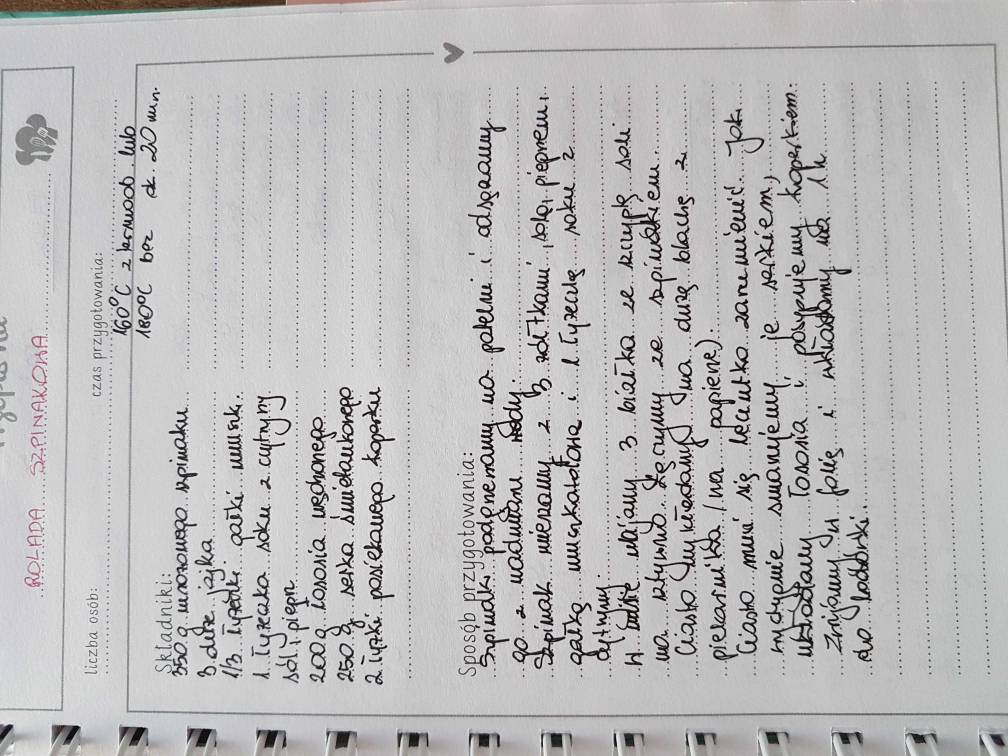 ROLADA SZPINAKOWA
liczba osób:
czas przygotowania:
160°C z termoob lub
180°C bez ok. 20 min.
Składniki:
350 g mrożonego szpinaku
3 duże jajka
1/3 łyżeczki gałki muszk.
1 łyżeczka soku z cytryny
sól i pieprz
200 g łososia wędzonego
250 g serka śmietankowego
2 łyżki posiekanego koperku
Sposób przygotowania:
Szpinak podgrzewamy na patelni i odsączamy
go z nadmiaru wody.
Szpinak mieszamy z 3 żółtkami, solą, pieprzem,
gałką muszkatołową i 1 łyżeczką soku z
cytryny.
W misce ubijamy 3 białka ze szczyptą soli
na sztywno. Łączymy ze szpinakiem.
Ciasto wykładamy na dużą blachę z
piekarnika (na papierze).
Ciasto musi się leciutko zarumienić. Jak
wystygnie smarujemy je serkiem,
układamy łososia i posypujemy koperkiem.
Zwijamy w folię i wkładamy na 1 h
do lodówki.